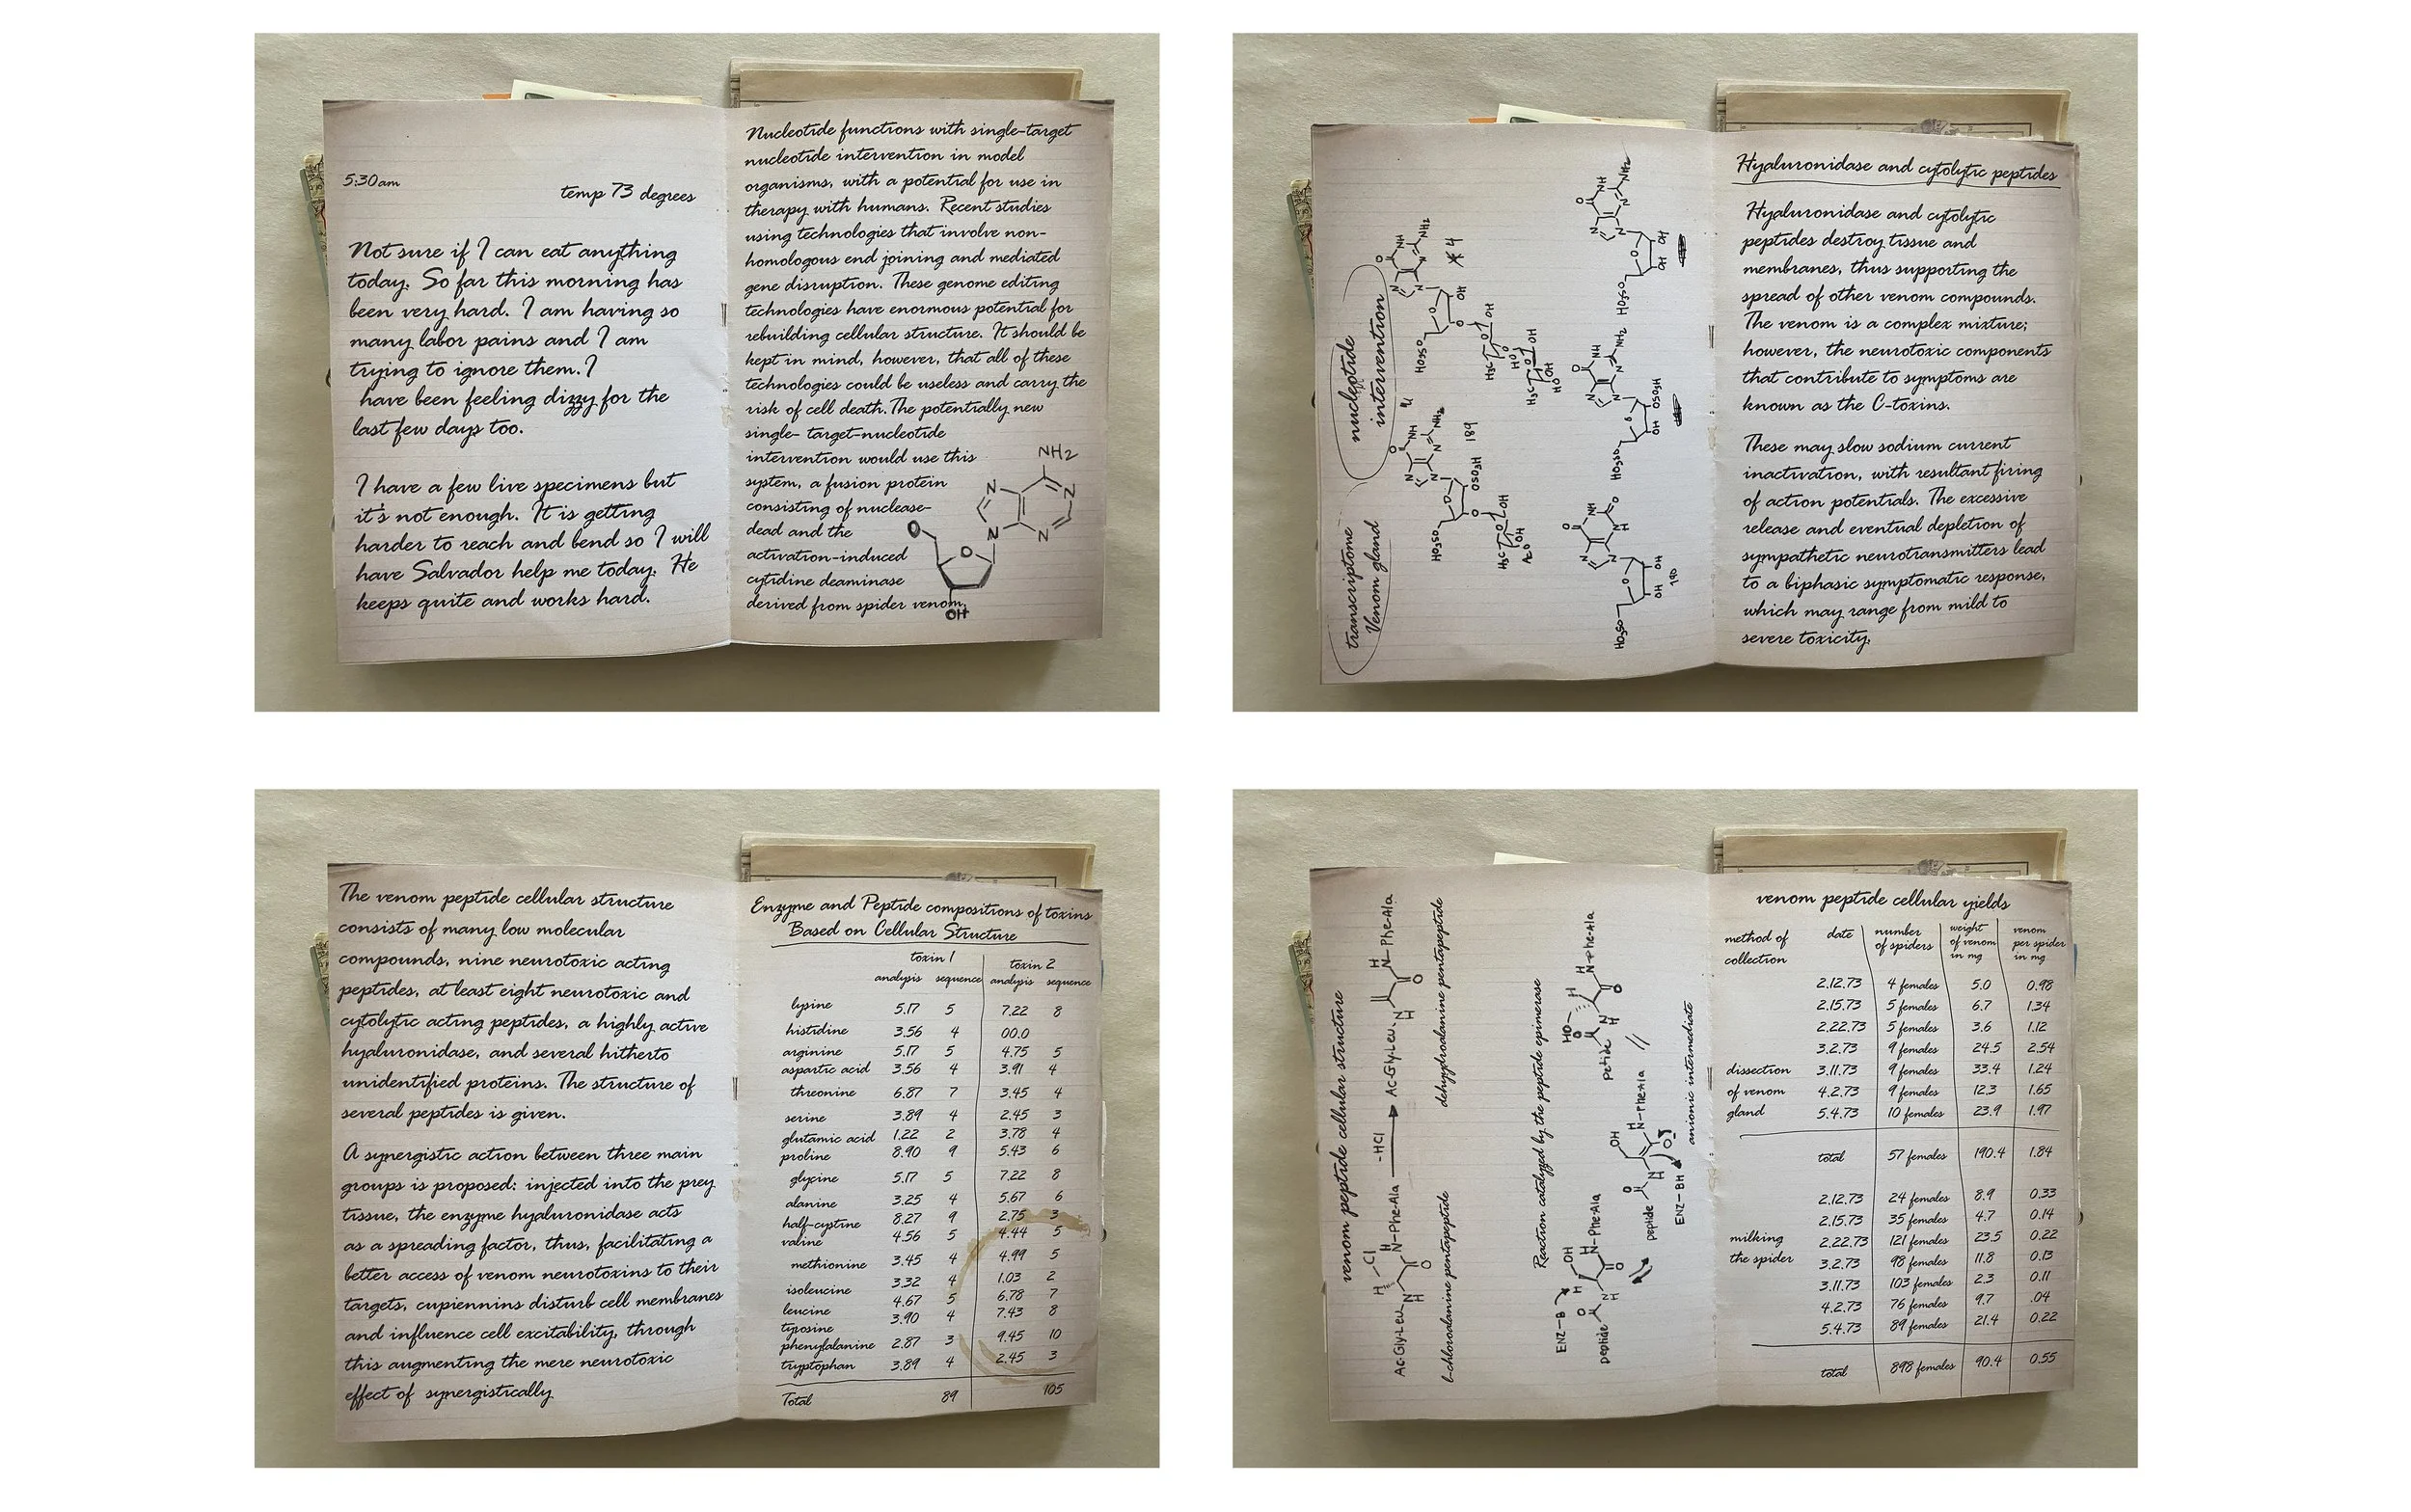 5:30am
temp 73 degrees
Not sure if I can eat anything
today. So far this morning has
been very hard. I am having so
many labor pains and I am
trying to ignore them. I
have been feeling dizzy for the
last few days too.
I have a few live specimens but
it's not enough. It is getting
harder to reach and bend so I will
have Salvador help me today. He
keeps quite and works hard.
Nucleotide functions with single-target
nucleotide intervention in model
organisms, with a potential for use in
therapy with humans. Recent studies
using technologies that involve non-
homologous end joining and mediated
gene disruption. These genome editing
technologies have enormous potential for
rebuilding cellular structure. It should be
kept in mind, however, that all of these
technologies could be useless and carry the
risk of cell death. The potentially new
single- target-nucleotide
intervention would use this
system, a fusion protein
consisting of nuclease-
dead and the
activation-induced
cytidine deaminase
derived from spider venom.
NH2
N
N
N
N
O
O
OH
transcriptome
Venom gland
nucleptide
intervention
189
190
Hyaluronidase and cytolytic peptides
Hyaluronidase and cytolytic
peptides destroy tissue and
membranes, thus supporting the
spread of other venom compounds.
The venom is a complex mixture;
however, the neurotoxic components
that contribute to symptoms are
known as the C-toxins.
These may slow sodium current
inactivation, with resultant firing
of action potentials. The excessive
release and eventual depletion of
sympathetic neurotransmitters lead
to a biphasic symptomatic response,
which may range from mild to
severe toxicity.
The venom peptide cellular structure
consists of many low molecular
compounds, nine neurotoxic acting
peptides, at least eight neurotoxic and
cytolytic acting peptides, a highly active
hyaluronidase, and several hitherto
unidentified proteins. The structure of
several peptides is given.
A synergistic action between three main
groups is proposed: injected into the prey
tissue, the enzyme hyaluronidase acts
as a spreading factor, thus, facilitating a
better access of venom neurotoxins to their
targets, cupiennins disturb cell membranes
and influence cell excitability, through
this augmenting the mere neurotoxic
effect of synergistically
Enzyme and Peptide compositions of toxins
Based on Cellular Structure
toxin 1 toxin 2
analysis sequence analysis sequence
lysine 5.17 5 7.22 8
histidine 3.56 4 00.0
arginine 5.17 5 4.75 5
aspartic acid 3.56 4 3.91 4
threonine 6.87 7 3.45 4
serine 3.89 4 2.45 3
glutamic acid 1.22 2 3.78 4
proline 8.90 9 5.43 6
glycine 5.17 5 7.22 8
alanine 3.25 4 5.67 6
half-cystine 8.27 9 2.75 3
valine 4.56 5 4.44 5
methionine 3.45 4 4.99 5
isoleucine 3.32 4 1.03 2
4.67 5 6.78 7
leucine 3.90 4 7.43 8
tyrosine
phenylalanine 2.87 3 9.45 10
tryptophan 3.89 4 2.45 3
Total 89 105
venom peptide cellular structure
Ac-Gly-Leu N-Phe-Ala -HCl Ac-Gly-Leu N-Phe-Ala
b-chloroalanine pentapeptide dehydroalanine pentapeptide
Reaction catalyzed by the peptide epimerase
ENZ-B
peptide N-Phe-Ala
peptide N-Phe-Ala
ENZ-BH
Peptide N-Phe-Ala
anionic intermediate
venom peptide cellular yields
method of collection date number of spiders weight of venom in mg venom per spider in mg
2.12.73 4 females 5.0 0.98
2.15.73 5 females 6.7 1.34
2.22.73 5 females 3.6 1.12
3.2.73 9 females 24.5 2.54
dissection 3.11.73 9 females 33.4 1.24
of venom 4.2.73 9 females 12.3 1.65
gland 5.4.73 10 females 23.9 1.97
total 57 females 190.4 1.84
2.12.73 24 females 8.9 0.33
2.15.73 35 females 4.7 0.14
milking 2.22.73 121 females 23.5 0.22
the spider 3.2.73 98 females 11.8 0.13
3.11.73 103 females 2.3 0.11
4.2.73 76 females 9.7 .04
5.4.73 89 females 21.4 0.22
total 898 females 90.4 0.55